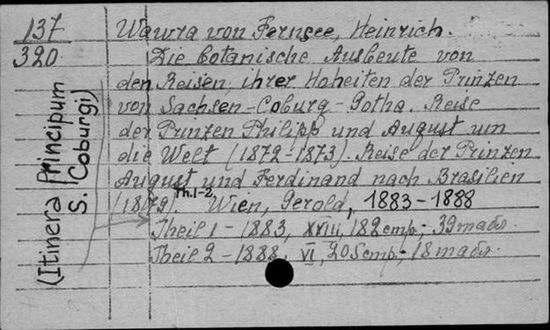 137 Wawra von Fernsee, Heinrich.
320 Die botanische Ausbeute von
den Reisen ihrer Hoheiten der Prinzen
von Sachsen-Coburg-Gotha. Reise
der Prinzen Philipp und August um
die Welt (1872-1873). Reise der Prinzen
August und Ferdinand nach Brasilien
(1879). Th.1-2 Wien, Gerold, 1883-1888
Theil 1 - 1883, XVIII, 182 стр.; 39 табл.
Theil 2 - 1888, VI, 205 стр.; 18 табл.
(Itinera Principum
S. Coburgi)